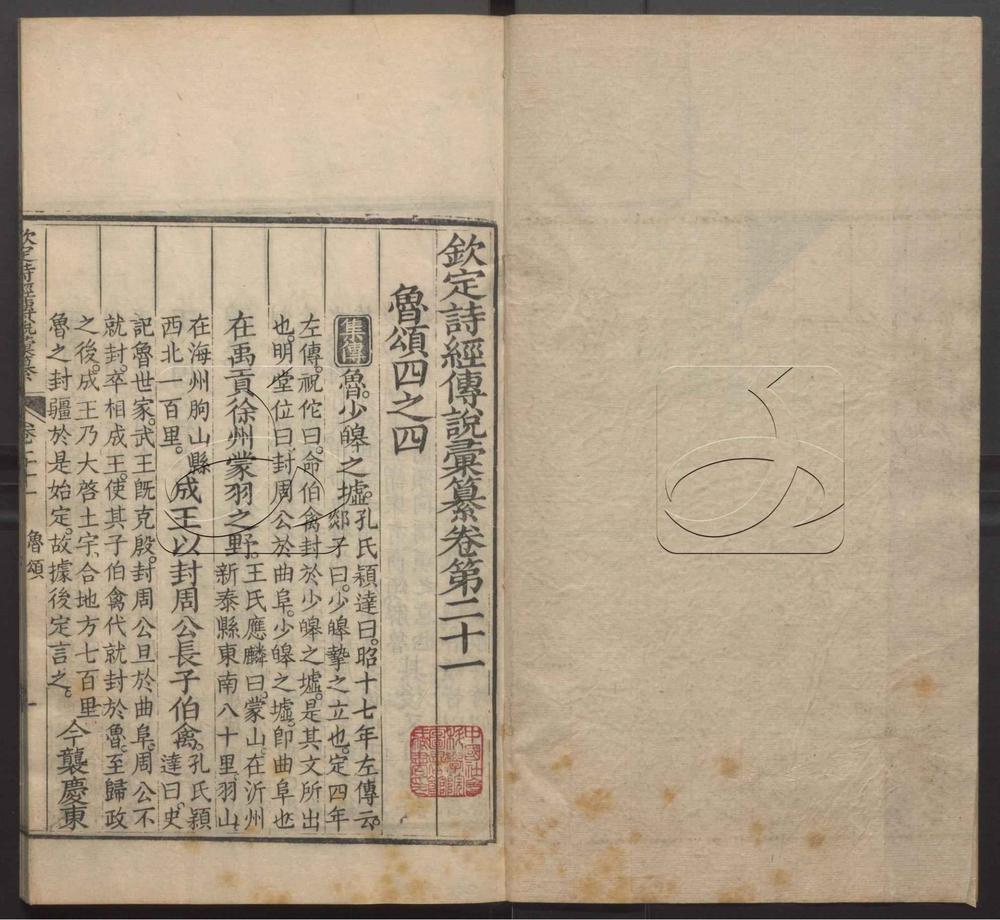 欽定詩經傳說彙纂卷第二十一
魯頌四之四
集傳魯。少皞之墟。
孔氏穎達曰。昭十七年左傳云。
郯子曰。少皞摯之立也。定四年
左傳。祝佗曰。命伯禽封於少皞之墟。是其文所出
也。明堂位曰。封周公於曲阜。少皞之墟。卽曲阜也。
在禹貢徐州蒙羽之野。
王氏應麟曰。蒙山。在沂州
新泰縣東南八十里。羽山。
在海州朐山縣
西北一百里。
成王以封周公長子伯禽。
孔氏穎
達曰。史
記魯世家。武王旣克殷。封周公旦於曲阜。周公不
就封。卒相成王。使其子伯禽代就封於魯。至歸政
之後。成王乃大啓土宇。合地方七百里。
魯之封疆於是始定。故據後定言之。
今襲慶東
魯頌